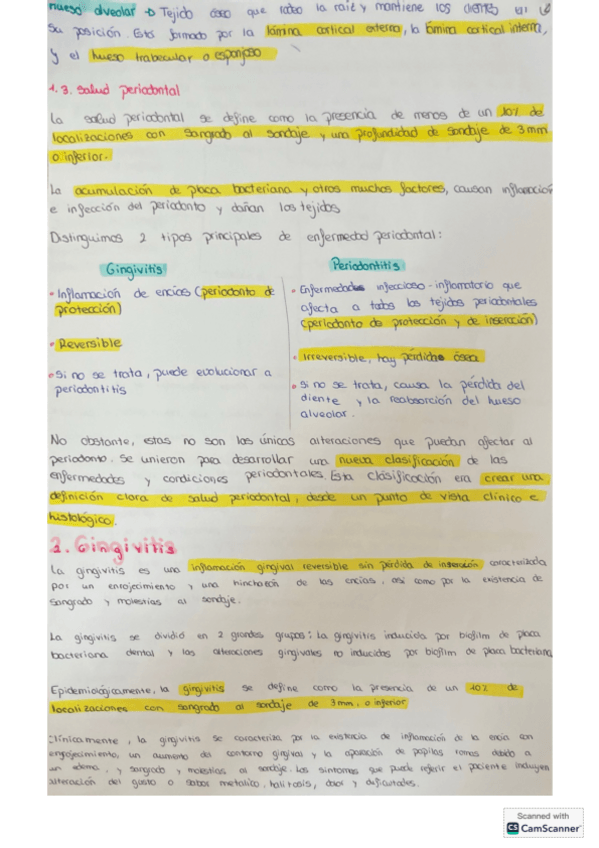 hueso alveolar → Tejido óseo que rodea la raíz y mantiene los dientes en
su posición. Está formado por la lámina cortical externa, la lámina cortical interna,
y el hueso trabecular o esponjoso
1.3. Salud periodontal
La salud periodontal se define como la presencia de menos de un 10% de
localizaciones con sangrado al sondaje y una profundidad de sondaje de 3mm
o inferior.
La acumulación de placa bacteriana y otros muchos factores, causan inflamación
e infección del periodonto y dañan los tejidos
Distinguimos 2 tipos principales de enfermedad periodontal:
Gingivitis
• Inflamación de encías (periodonto de
protección)
• Reversible
• Si no se trata, puede evolucionar a
periodontitis
Periodontitis
• Enfermedades infeccioso-inflamatorio que
afecta a todos los tejidos periodontales
(periodonto de protección y de inserción)
• Irreversible, hay pérdida ósea
• Si no se trata, causa la pérdida del
diente y la reabsorción del hueso
alveolar.
No obstante, estas no son las únicas alteraciones que puedan afectar al
periodonto. Se unieron para desarrollar una nueva clasificación de las
enfermedades y condiciones periodontales. Esta clasificación era crear una
definición clara de salud periodontal, desde un punto de vista clínico e
histológico.
2. Gingivitis
La gingivitis es una inflamación gingival reversible sin pérdida de inserción caracterizada
por un enrojecimiento y una hinchazón de las encías, así como por la existencia de
sangrado y molestias al sondaje.
La gingivitis se dividió en 2 grandes grupos: la gingivitis inducida por biofilm de placa
bacteriana dental y las alteraciones gingivales no inducidas por biofilm de placa bacteriana
Epidemiológicamente, la gingivitis se define como la presencia de un 10% de
localizaciones con sangrado al sondaje de 3mm. o inferior
Clínicamente, la gingivitis se caracteriza por la existencia de inflamación de la encía con
enrojecimiento, un aumento del contorno gingival y la aparición de papilas romas debido a
un edema, y sangrado y molestias al sondaje. Los síntomas que puede referir el paciente incluyen
alteración del gusto o sabor metálico, halitosis, dolor y
Scanned with
CS CamScanner